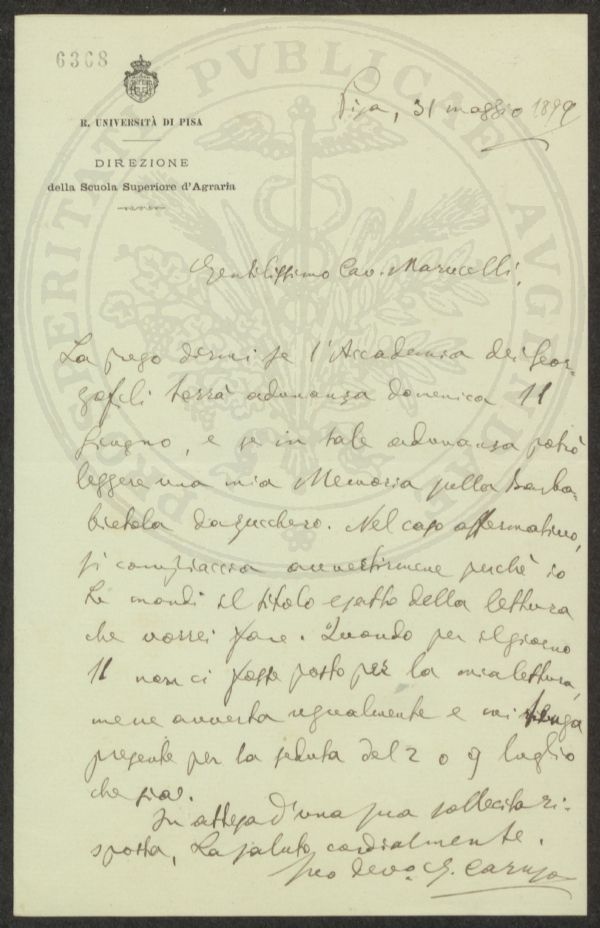 6368
R. UNIVERSITÀ DI PISA
DIREZIONE
della Scuola Superiore d'Agraria
Pisa, 31 maggio 1899
Gentilissimo Cav. Marucelli.
La prego dirmi se l'Accademia dei Geor-
gofili terrà adunanza domenica 11
giugno, e se in tale adunanza potrò
leggere una mia Memoria sulla Barba-
bietola da zucchero. Nel caso affermativo,
si compiaccia avvertirmene perchè io
Le mandi il titolo esatto della lettura
che vorrei fare. Quando per il giorno
11 non ci fosse posto per la mia lettura,
me ne avverta ugualmente e mi tenga
presente per la seduta del 2 o 9 luglio
che sia.
In attesa d'una sua sollecita ri-
sposta, La saluto cordialmente.
Suo devo. G. Caruso
PROSPERITATI PVBLICAE AVGENDAE